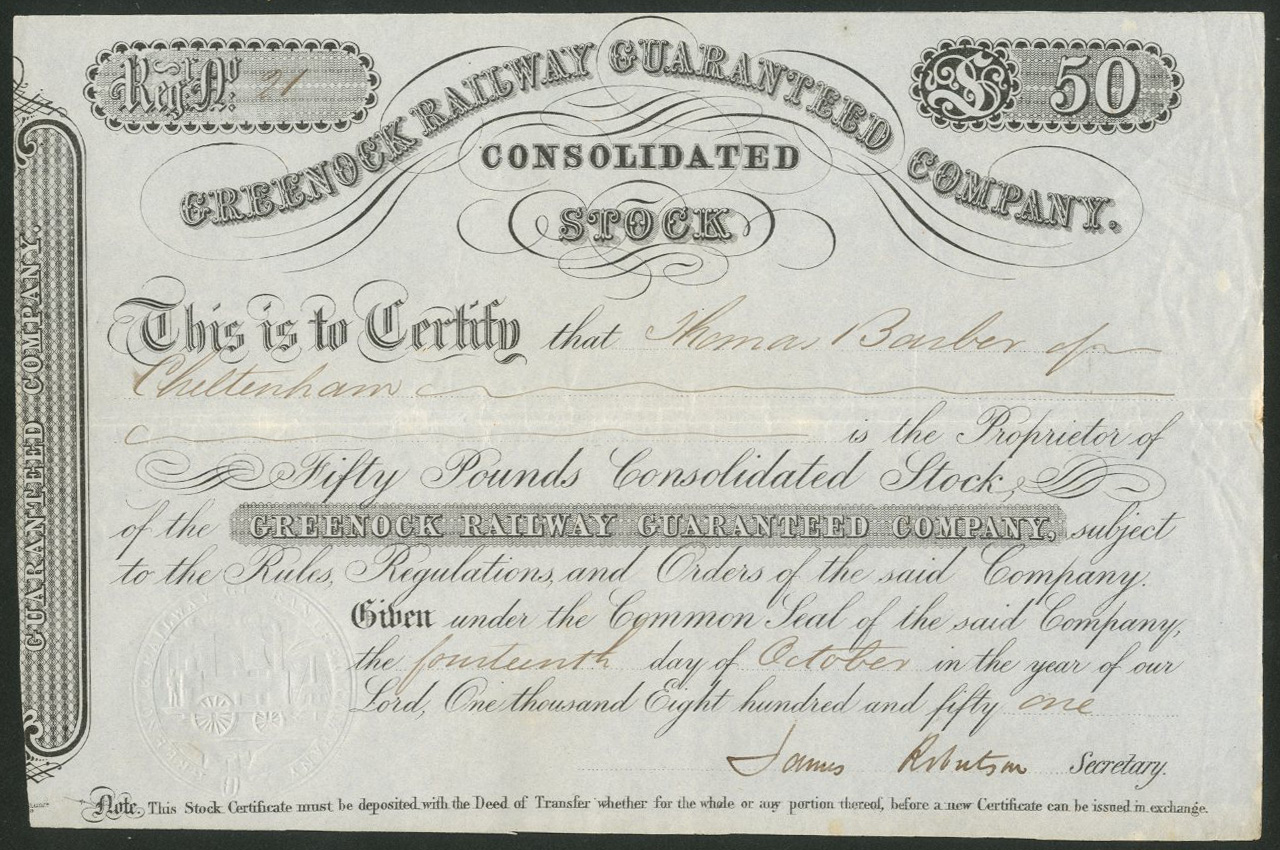 Regr. No: 21
£ 50
GREENOCK RAILWAY GUARANTEED COMPANY.
CONSOLIDATED
STOCK
GUARANTEED COMPANY.
This is to Certify that Thomas Barber of
Cheltenham
is the Proprietor of
Fifty Pounds Consolidated Stock,
of the GREENOCK RAILWAY GUARANTEED COMPANY, subject
to the Rules, Regulations, and Orders of the said Company.
Given under the Common Seal of the said Company,
the fourteenth day of October in the year of our
Lord, One thousand Eight hundred and fifty one
James Robertson Secretary.
Note. This Stock Certificate must be deposited with the Deed of Transfer whether for the whole or any portion thereof, before a new Certificate can be issued in exchange.